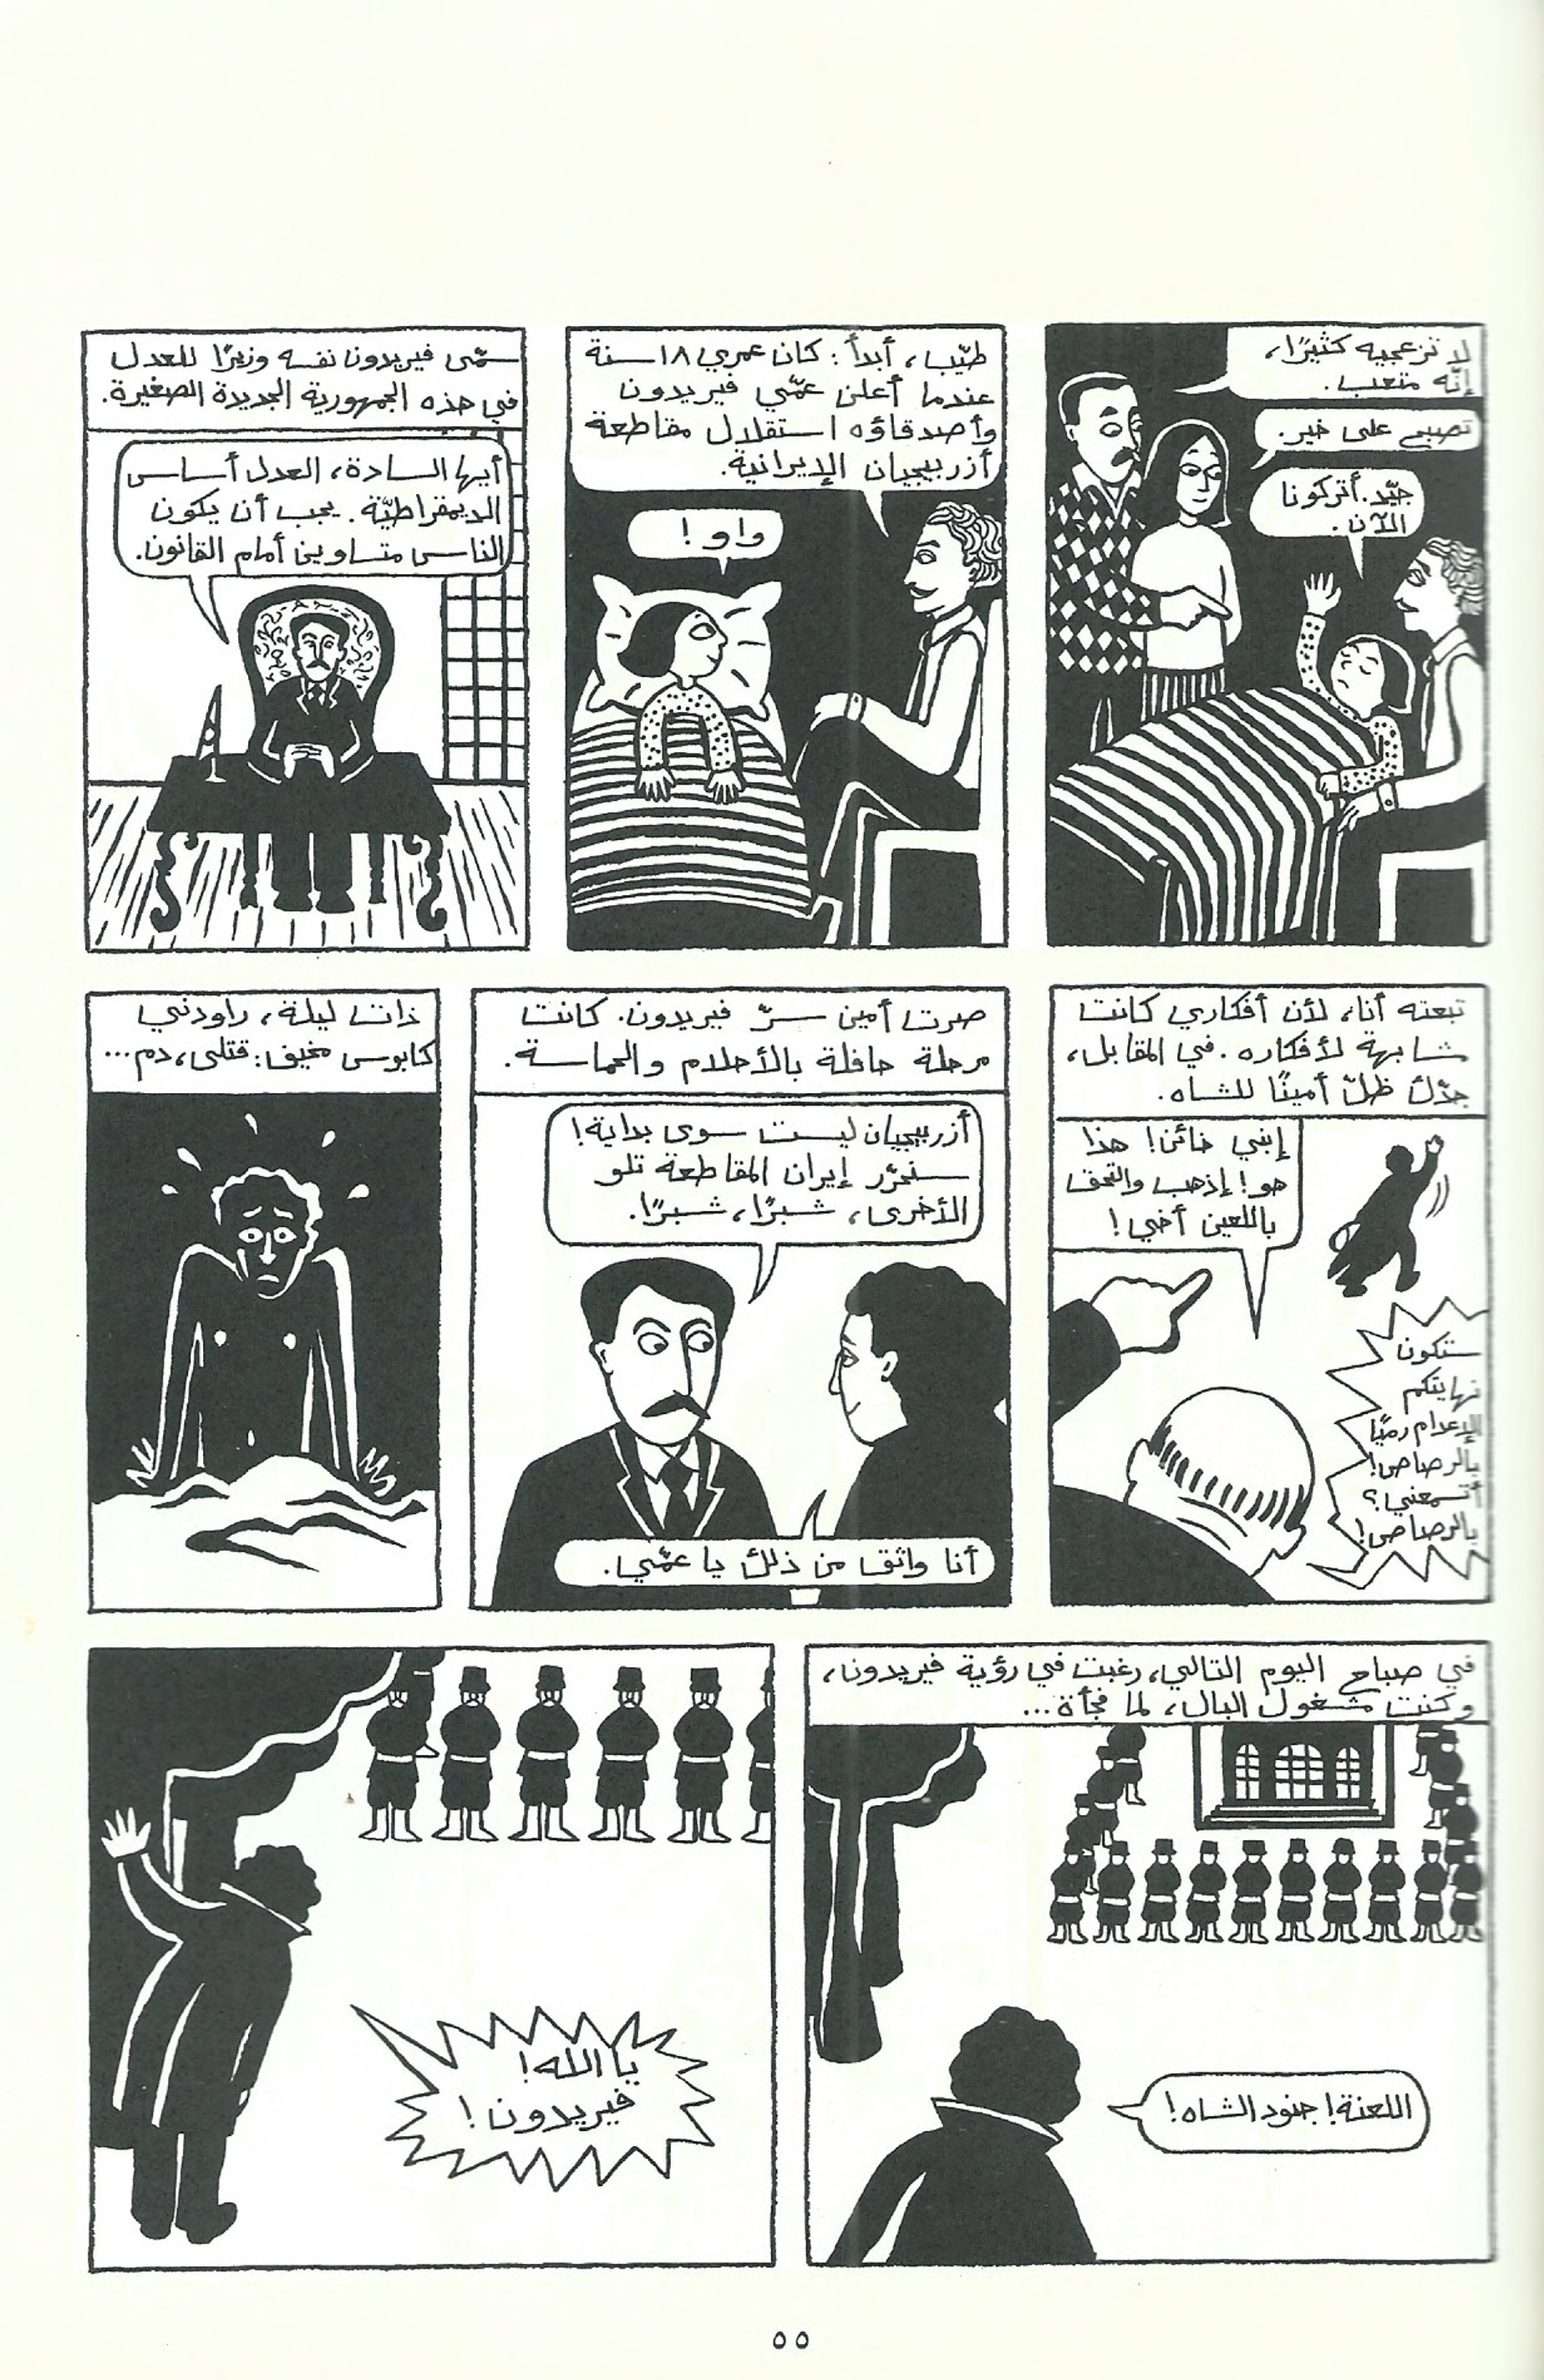 لا تزعجيه كثيرًا،
إنّه متعب.
تصبح على خير.
جيّد. أتركونا
الآن.
طيّب، أبدأ: كان عمري ١٨ سنة
عندما أعلن عمّي فيريدون
وأصدقاؤه استقلال مقاطعة
أزربيجيان الإيرانية.
واو!
سمّى فيريدون نفسه وزيرًا للعدل
في هذه الجمهورية الجديدة الصغيرة.
أيها السادة، العدل أساس
الديمقراطيّة. يجب أن يكون
الناس متساوين أمام القانون.
تبعته أنا، لأن أفكاري كانت
مشابهة لأفكاره. في المقابل،
جدّك ظلّ أمينًا للشاه.
إبني خائن! هذا
هو! إذهب والتحق
باللعين أخي!
ستكون
نهايتكم
الإعدام رميًا
بالرصاص!
أتسمعني؟
بالرصاص!
صرت أمين سرّ فيريدون. كانت
مرحلة حافلة بالأحلام والحماسة.
أزربيجيان ليست سوى بداية!
سنحرّر إيران المقاطعة تلو
الأخرى، شبرًا، شبرًا.
أنا واثق من ذلك يا عمّي.
ذات ليلة، راودني
كابوس مخيف: قتلى، دم...
في صباح اليوم التالي، رغبت في رؤية فيريدون،
وكنت مشغول البال، لما فجأة...
اللعنة! جنود الشاه!
يا الله!
فيريدون!
٥٥